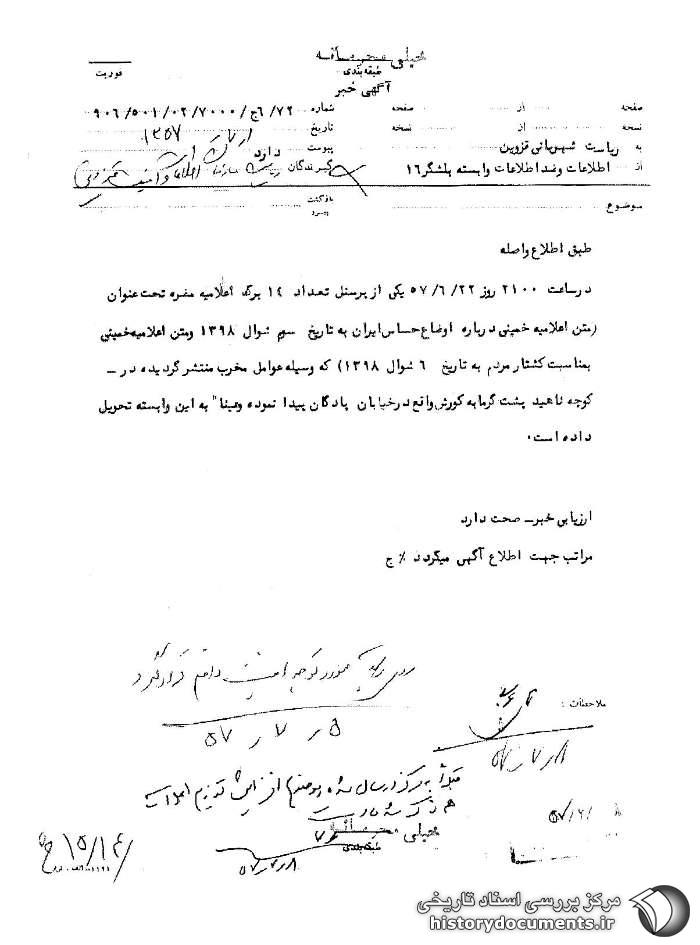 خیلی محرمانه
طبقه‌بندی
فوریت
آگهی خبر
صفحه از صفحه شماره ۹۰۶/۵۰۱/۰۲/۷۰۰۰/ج۶/۷۲
نسخه از نسخه تاریخ ۱۳۵۷
به ریاست شهربانی قزوین پیوست دارد
از اطلاعات و ضد اطلاعات وابسته بلشگر ۱۶ گیرندگان ریاست سازمان اطلاعات و امنیت قزوین
موضوع بازگشت
طبق اطلاع واصله
در ساعت ۲۱۰۰ روز ۵۷/۶/۲۲ یکی از پرسنل تعداد ۱۴ برگ اعلامیه مضره تحت عنوان
(متن اعلامیه خمینی درباره اوضاع حساس ایران به تاریخ سوم شوال ۱۳۹۸ ومتن اعلامیه خمینی
بمناسبت کشتار مردم به تاریخ ۶ شوال ۱۳۹۸) که وسیله عوامل مخرب منتشر گردیده در ــ
کوچه ناهید پشت گرمابه کورش واقع در خیابان پادگان پیدا نموده وعینا" به این وابسته تحویل
داده است.
ارزیابی خبرــ صحت دارد
مراتب جهت اطلاع آگهی میگردد ٪ ج
۵ ر ۷ ر ۵۷
ملاحظات :
۸ ر ۷ ر ۵۷
خیلی محرمانه
طبقه‌بندی
۸ ر ۷ ر ۵۷
مرکز بررسی اسناد تاریخی
historydocuments.ir